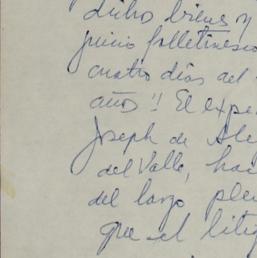 dicho bienes y
juicio folletinesco
cuatro días del
años!! El expe
Joseph de Ale
del Valle, hac
del largo plei
que el litig